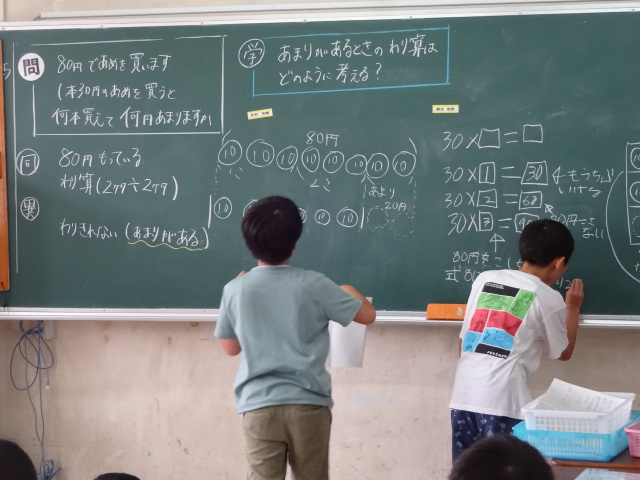 問
80円であめを買います
1本30円のあめを買うと
何本買えて何円あまりますか
同
80円もっている
わり算(2ケタ÷2ケタ)
異
わりきれない(あまりがある)
学
あまりがあるときのわり算は
どのように考える?
80円
10 10 10 10 10 10 10 10
10 10 10
あまり
20円
30×□=□
30×1=30 もうちょっと
いける
30×2=60
30×3=90
80円をこ
式